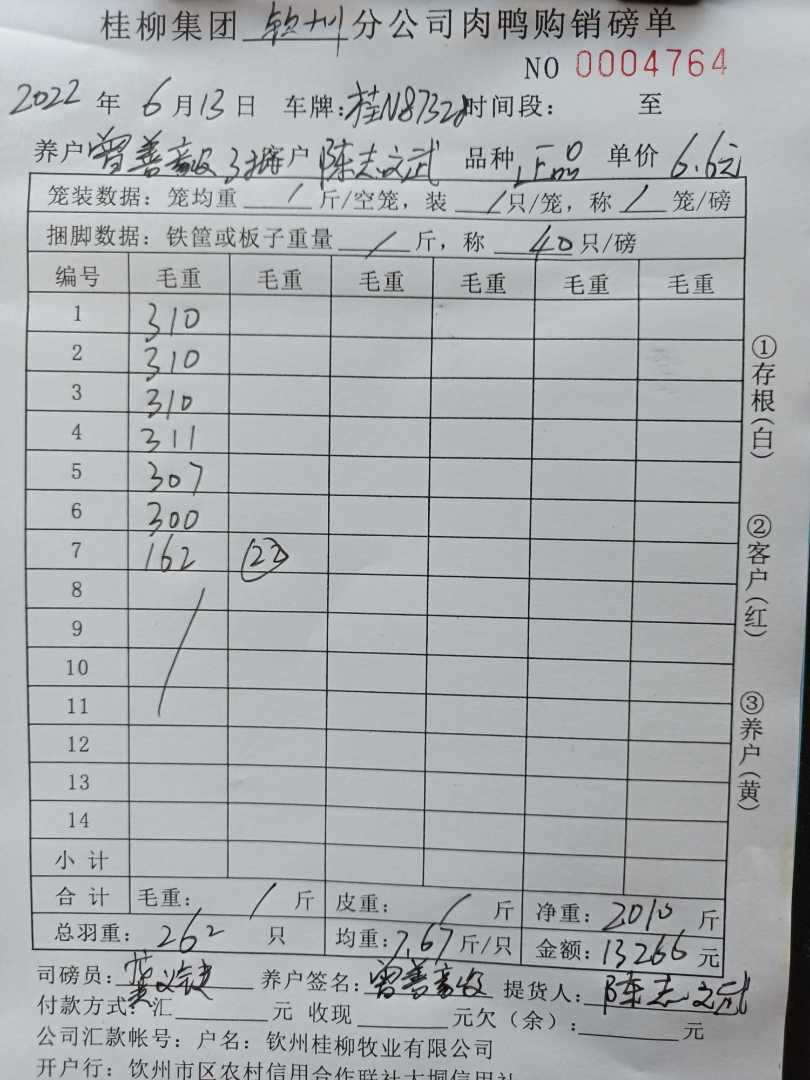 桂柳集团 钦州 分公司肉鸭购销磅单
NO 0004764
2022 年 6 月 13 日 车牌:桂N87328 时间段: 至
养户 曾善 户 陈志武 品种 正品 单价 6.6元
笼装数据: 笼均重 / 斤/空笼, 装 / 只/笼, 称 / 笼/磅
捆脚数据: 铁筐或板子重量 / 斤, 称 40 只/磅
编号 毛重 毛重 毛重 毛重 毛重 毛重
1 310
2 310
3 310
4 311
5 307
6 300
7 162 (22)
8
9
10
11
12
13
14
小计
合计 毛重: / 斤 皮重: / 斤 净重: 2010 斤
总羽重: 262 只 均重: 7.67 斤/只 金额: 13266 元
司磅员: 养户签名: 曾善 提货人: 陈志武
付款方式: 汇 元 收现 元欠(余): 元
公司汇款帐号: 户名: 钦州桂柳牧业有限公司
开户行: 钦州市区农村信用合作联社大垌信用社
①存根(白)
②客户(红)
③养户(黄)